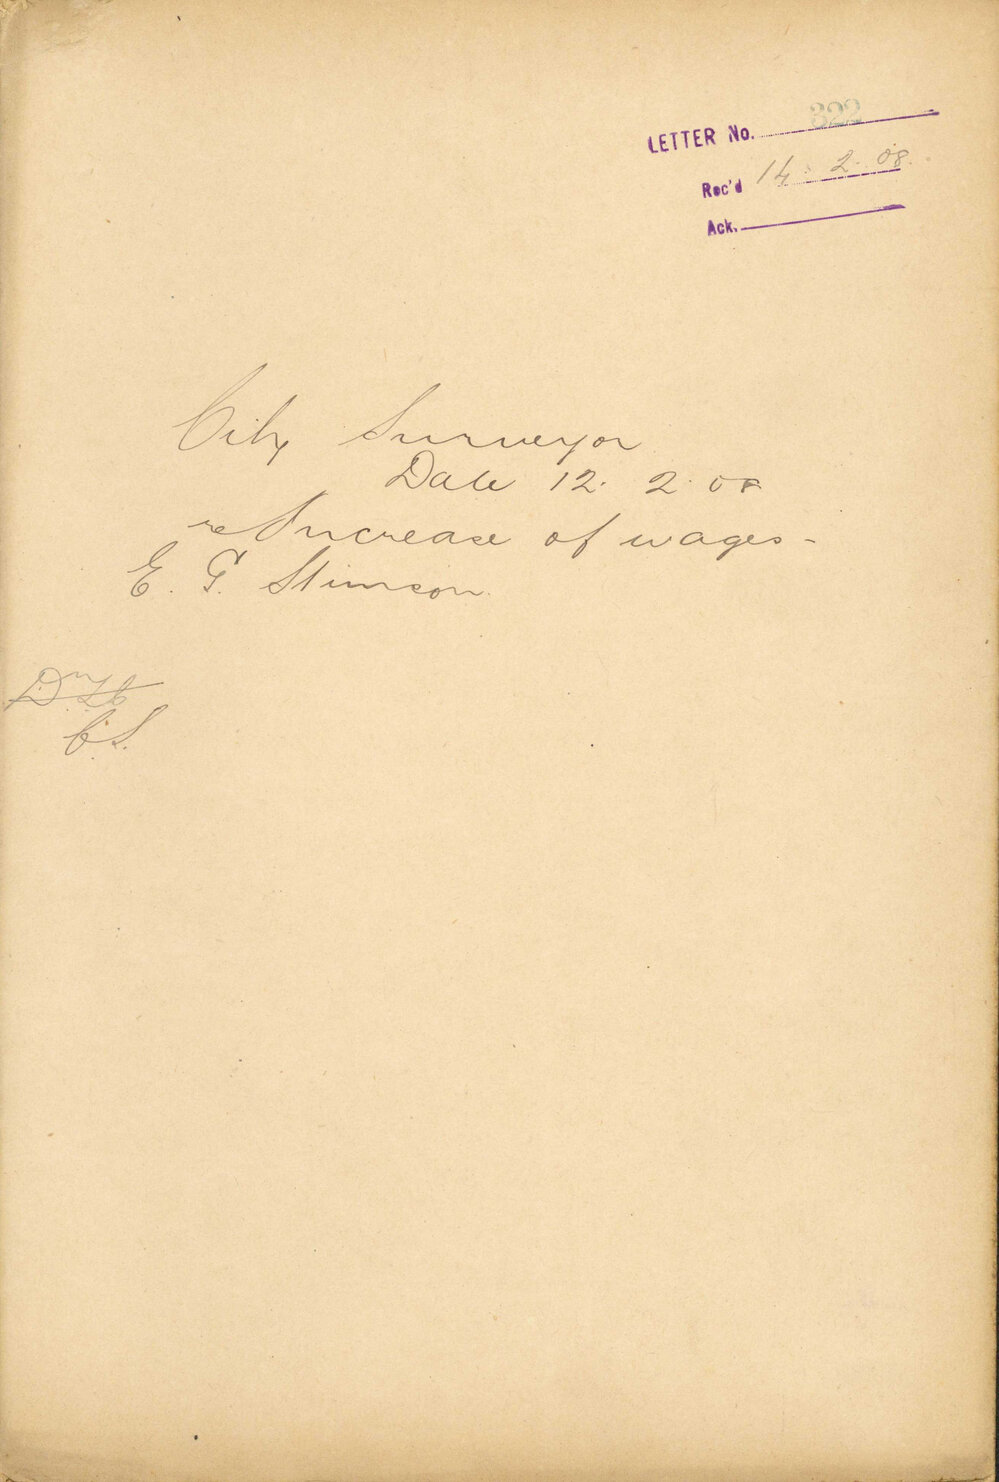 LETTER No. 322
Rec'd 14.2.08.
Ack.
City Surveyor
Date 12.2.08
re Increase of wages -
E. G. Stimson.
C.S.